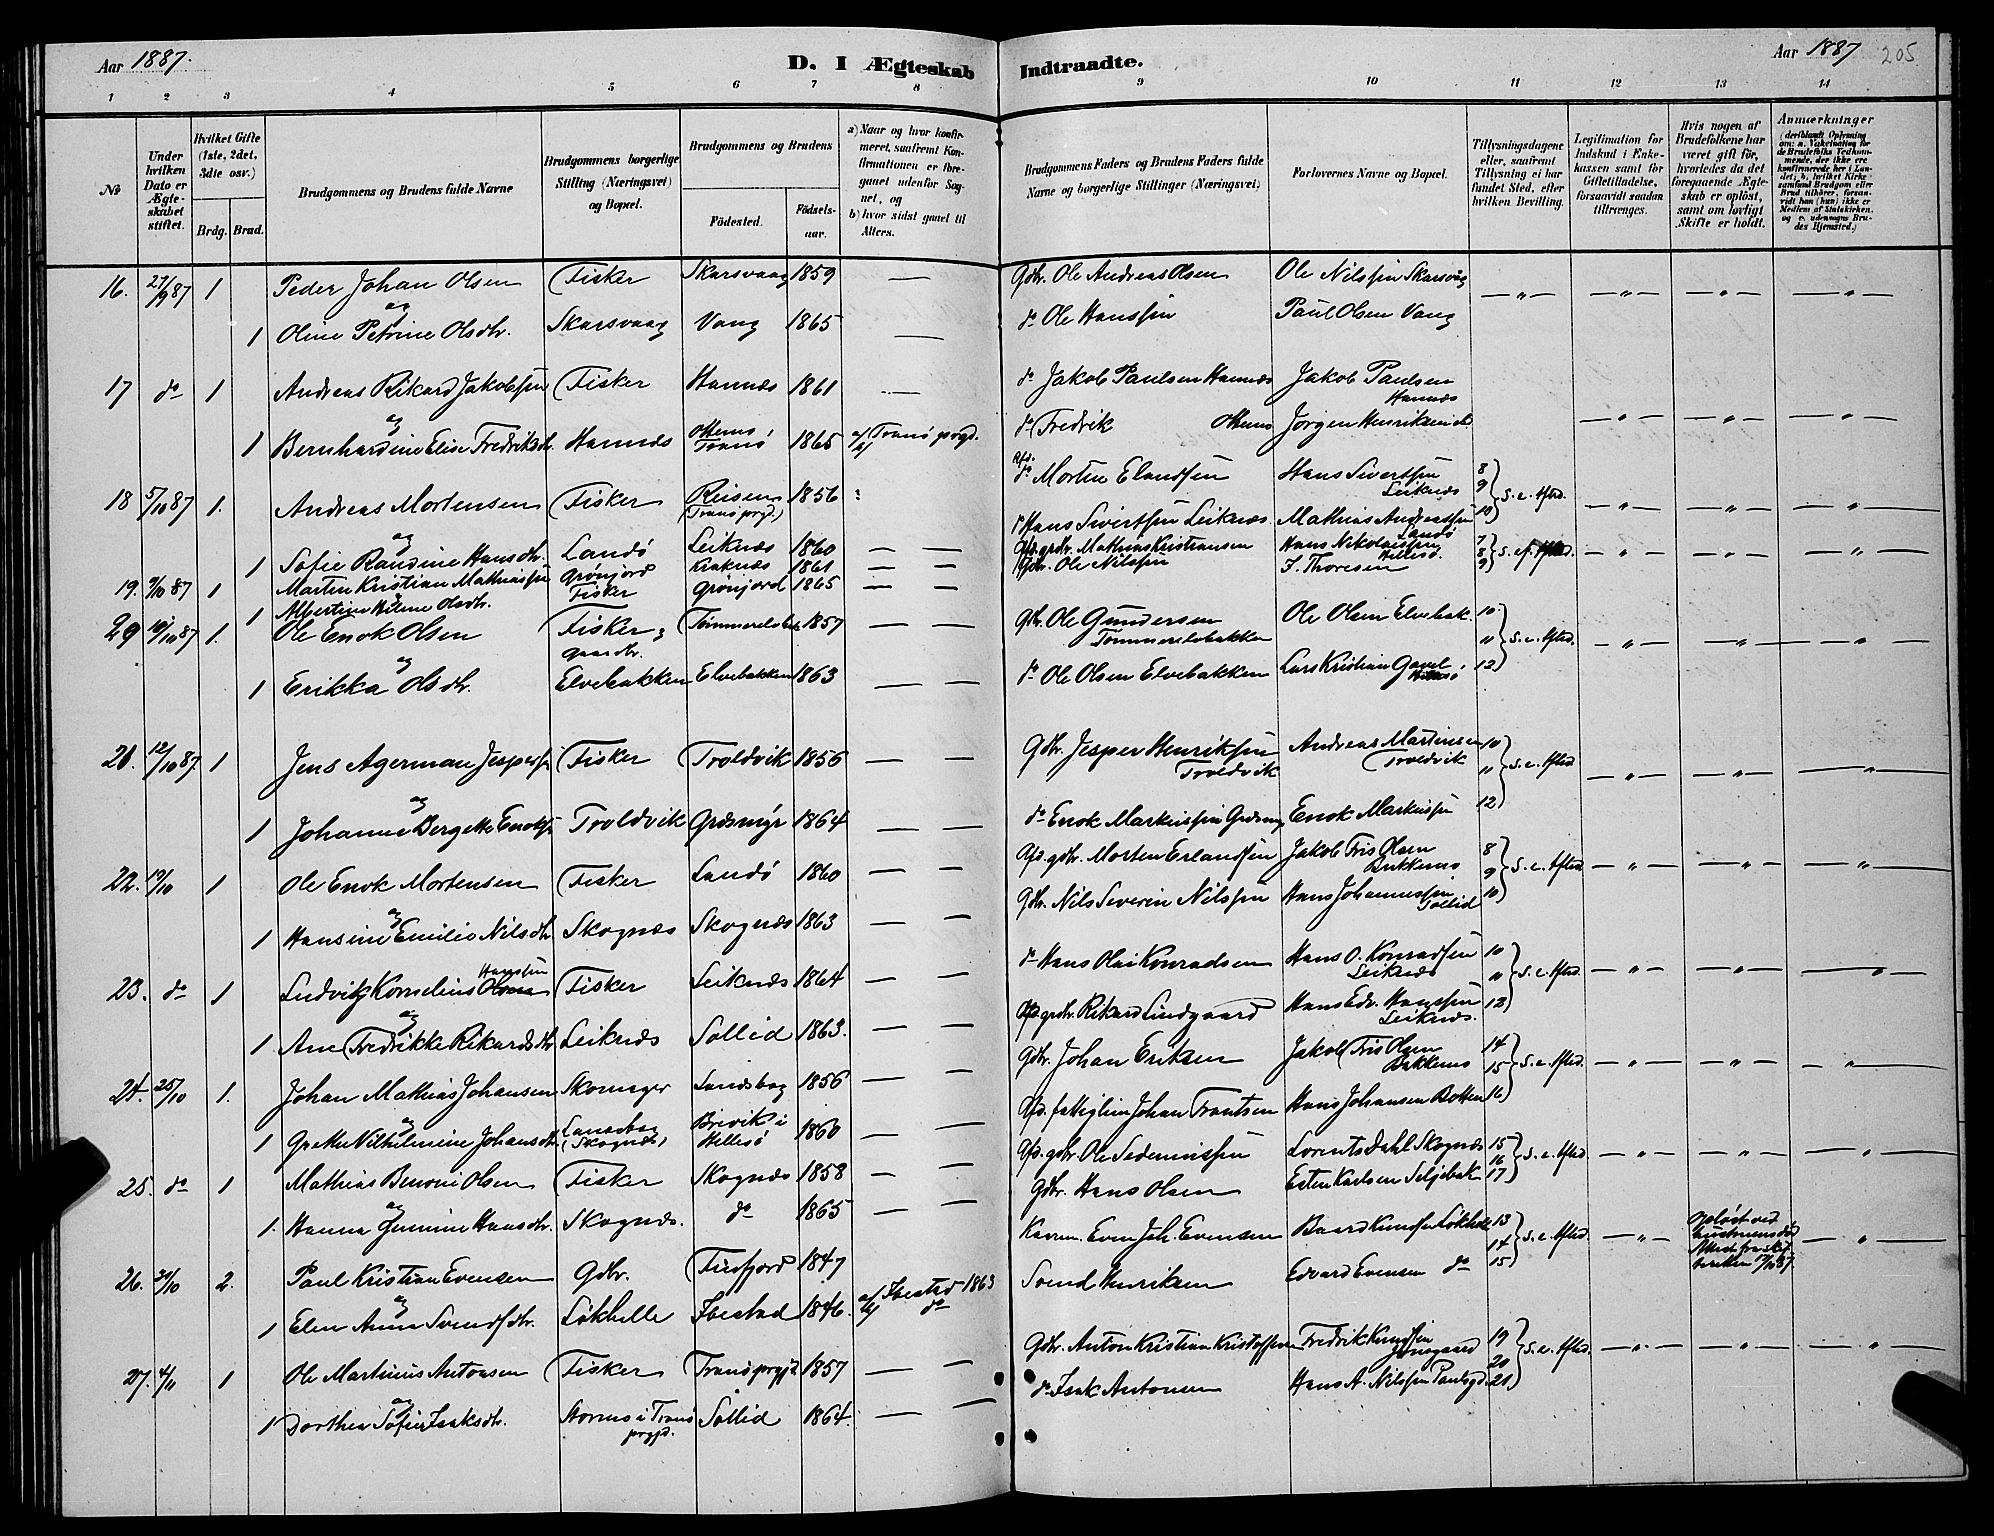 Aar 1887.
D. I Ægteskab Indtraadte.
Aar 1887 205
1 2 3 4 5 6 7 8 9 10 11 12 13 14
No
Under hvilken Dato er Ægteskabet stiftet.
Hvilket Gifte (1ste, 2det, 3dte osv.)
Brdg. Brud.
Brudgommens og Brudens fulde Navne
Brudgommens borgerlige Stilling (Næringsvei) og Bopæl.
Brudgommens og Brudens
Fødested.
Fødselsaar.
a) Naar og hvor konfirmeret, saafremt Konfirmationen er foregaaet udenfor Sognet, og
b) hvor sidst gaaet til Alters.
Brudgommens Faders og Brudens Faders fulde Navne og borgerlige Stillinger (Næringsvei)
Forlovernes Navne og Bopæl.
Tillysningsdagene eller, saafremt Tillysning ei har fundet Sted, efter hvilken Bevilling.
Legitimation for Indskud i Enkekassen samt for Giftetilladelse, forsaavidt saadan tiltrænges.
Hvis nogen af Brudefolkene har været gift før, hvorledes da det foregaaende Ægteskab er opløst, samt om lovligt Skifte er holdt.
Anmærkninger
16. 27/9 87 1 Peder Johan Olsen Fisker Skarsvaag 1859 — Gdbr. Ole Andreas Olsen Ole Nilssen Skarsvåg — " — — " — — " — — " —
og
1 Oline Petrine Olsdtr. Skarsvaag Vang 1865 — do Ole Hanssen Paul Olsen Vang
17 do 1 Andreas Rikard Jakobssen Fisker Hannæs 1861 — do Jakob Paulsen Hannæs Jakob Paulsen Hannæs
og
1 Bernhardine Elise Fredriksdtr. Hannæs Tranö 1865 a/b) Tranö prgd. do Fredrik Jörgen Henriksen do — " — — " — — " —
18 5/10 87 1. Andreas Mortensen Fisker Reisen (Tranö prgd.) 1856 Afd. do Morten Elandsen Hans Sivertsen Leiknæs 8 9 10 S. e. Afted. — " — — " — — " —
og
1 Sofie Randine Hansdtr. Landö Leiknæs 1860 — — do Hans Sivertsen Leiknæs. Mathias Andreassen Landö
19. 9/10 87 1 Martin Kristian Mathiassen Grönjord Kraknæs 1861 — — Afd. grdr. Mathias Kristiansen Hans Nikolaissen Hillesö. 7 8 9 S. e. Afted. — " — — " — — " —
1 Albertine Helene Olsdtr. Fisker Grönjord 1865 — — Gdbr. Ole Nilssen J. Thoresen
20 10/10 87 1. Ole Enok Olsen Fisker, gaardbr. Tömmerelvbak. 1857 — — Gdbr. Ole Gundersen Tömmerelvbakken Ole Olsen Elvebak. 10 " 12 S. e. Afted. — " — — " — — " —
og
1 Erikka Olsdtr. Elvebakken Elvebakken 1863 — — do Ole Olsen Elvebakken Lars Kristian Gavel
21. 12/10 87 1 Jens Agerman Jesperssen Fisker Troldvik 1856 — — Gdbr. Jesper Henriksen Troldvik Andreas Martinsen Troldvik 10 " 12 S. e. Afted — " — — " — — " —
og
1 Johanne Bergette Enoksdtr. Troldvik Græsmyr 1864 — — do Enok Markussen Græsmyr Enok Markussen
22. 19/10 1 Ole Enok Mortensen Fisker Landö 1860 — — Afd. gdbr. Morten Erlandsen Jakob Friis Olsen Bakkenes 8 9 10 S. e. Afted — " — — " — — " —
og
1 Hansine Emilie Nilsdtr. Skognæs Skognæs 1863 — — Gdbr. Nils Severin Nilssen Hans Johannessen Sollid
23. do 1 Ludvig Kornelius Hanssen Fisker Leiknæs 1864 — — do Hans Olai Konradsen Hans O. Konradsen Leiknæs 10 " 12 S. e. Afted. — " — — " — — " —
og
1 Ane Fredrikke Rikardsdtr. Leiknæs Sollid 1863. — — Afd. grdbr. Rikard Lindgaard Hans Edv. Hanssen Leiknæs.
24. 25/10 1. Johan Mathias Johansen Skomager Landsbag 1856 — — Gdbr. Johan Eriksen Jakob Friis Olsen Bakkenes 14 15 16 S. e. Afted. — " — — " — — " —
og
1 Grethe Vilhelmine Johansdtr. Landsbag (Skognæs) Brevik i Hillesö 1860 — — Afd. fattiglem Johan Frantsen Hans Johansen Botten
25. do 1 Mathias Benoni Olsen Fisker Skognæs 1858 — — Afd. gdbr. Ole Sedeniussen Lorents Dahl Skognæs 15 16 17 S. e. Afted. — " — — " — — " —
og
1. Hanna Jennine Hansdtr. Skognæs. do 1865 — — Gdbr. Hans Olsen Esten Karlsen Seljebak
26. 30/10 2. Paul Kristian Evensen Gdbr. Finfjord 1847 Kaarm. Even Joh. Evensen Baard Knudsen Lökhelle 13 14 15 S. e. Afted. — " — Opløst ved hustruens död Attest fra skifteretten 17/10 87. — " —
og
1 Elen Anna Svendsdtr. Lökhelle Ibestad 1846. a/b) Ibestad 1863 do Svend Henriksen Edvard Evensen do
27. 4/11 1 Ole Martinus Antonsen Fisker Tranö prgjd 1857 — — Gdbr. Anton Kristian Kristoffersen Fredrik Knudsen 19 20 21 S. e. Afted. — " — — " — — " —
og
1 Dorthea Sofie Isaksdtr. Stornæs i Tranö prgjd. Sollid 1864. — — do Isak Antonsen Hans A. Nilssen Paulsgd.